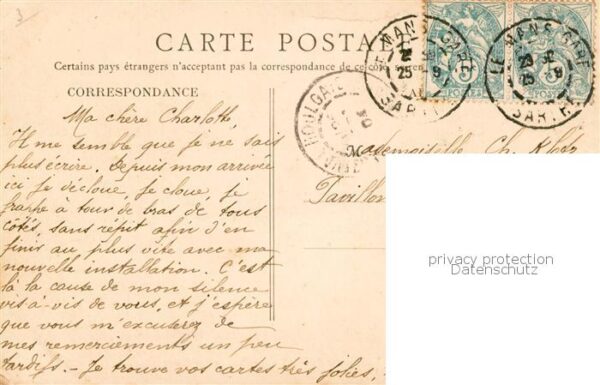 3
CARTE POSTA
Certains pays étrangers n'acceptent pas la correspondance de ce côté
CORRESPONDANCE
Ma chère Charlotte
Il me semble que je ne sais
plus écrire. Depuis mon arrivée
ici je décloue, je cloue, je
frappe à tour de bras de tous
côtés, sans répit afin d'en
finir au plus vite avec ma
nouvelle installation. C'est
là la cause de mon silence
vis-à-vis de vous, et j'espère
que vous m'excuserez de
mes remerciements un peu
tardifs. - Je trouve vos cartes très jolies,
LE MANS GARE
25
SARTHE
LE MANS GARE
25
SARTHE
POSTES
Mademoiselle Ch.
Pavillon
privacy protection
Datenschutz